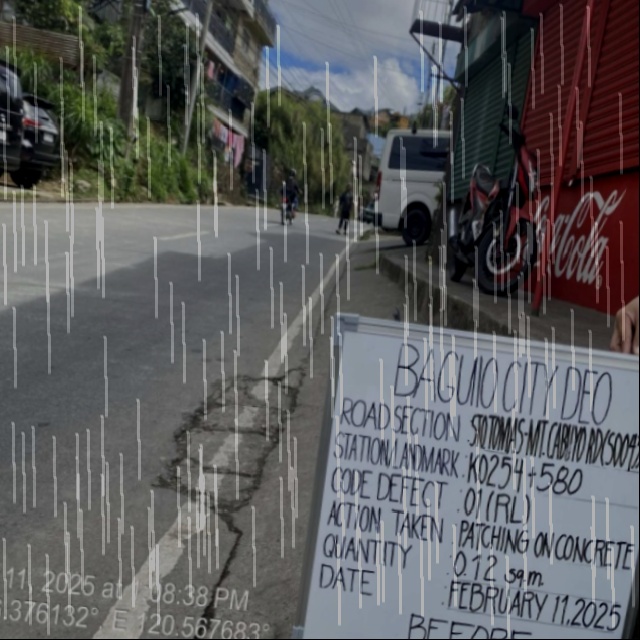 Coca-Cola
BAGUIO CITY DEO
ROAD SECTION :
STATION/LANDMARK : K0254+580
CODE DEFECT : 01 (RL)
ACTION TAKEN : PATCHING ON CONCRETE
QUANTITY : 0.12 sqm
DATE : FEBRUARY 11, 2025
BEFORE
11, 2025 at 08:38 PM
376132° E 120.567683°